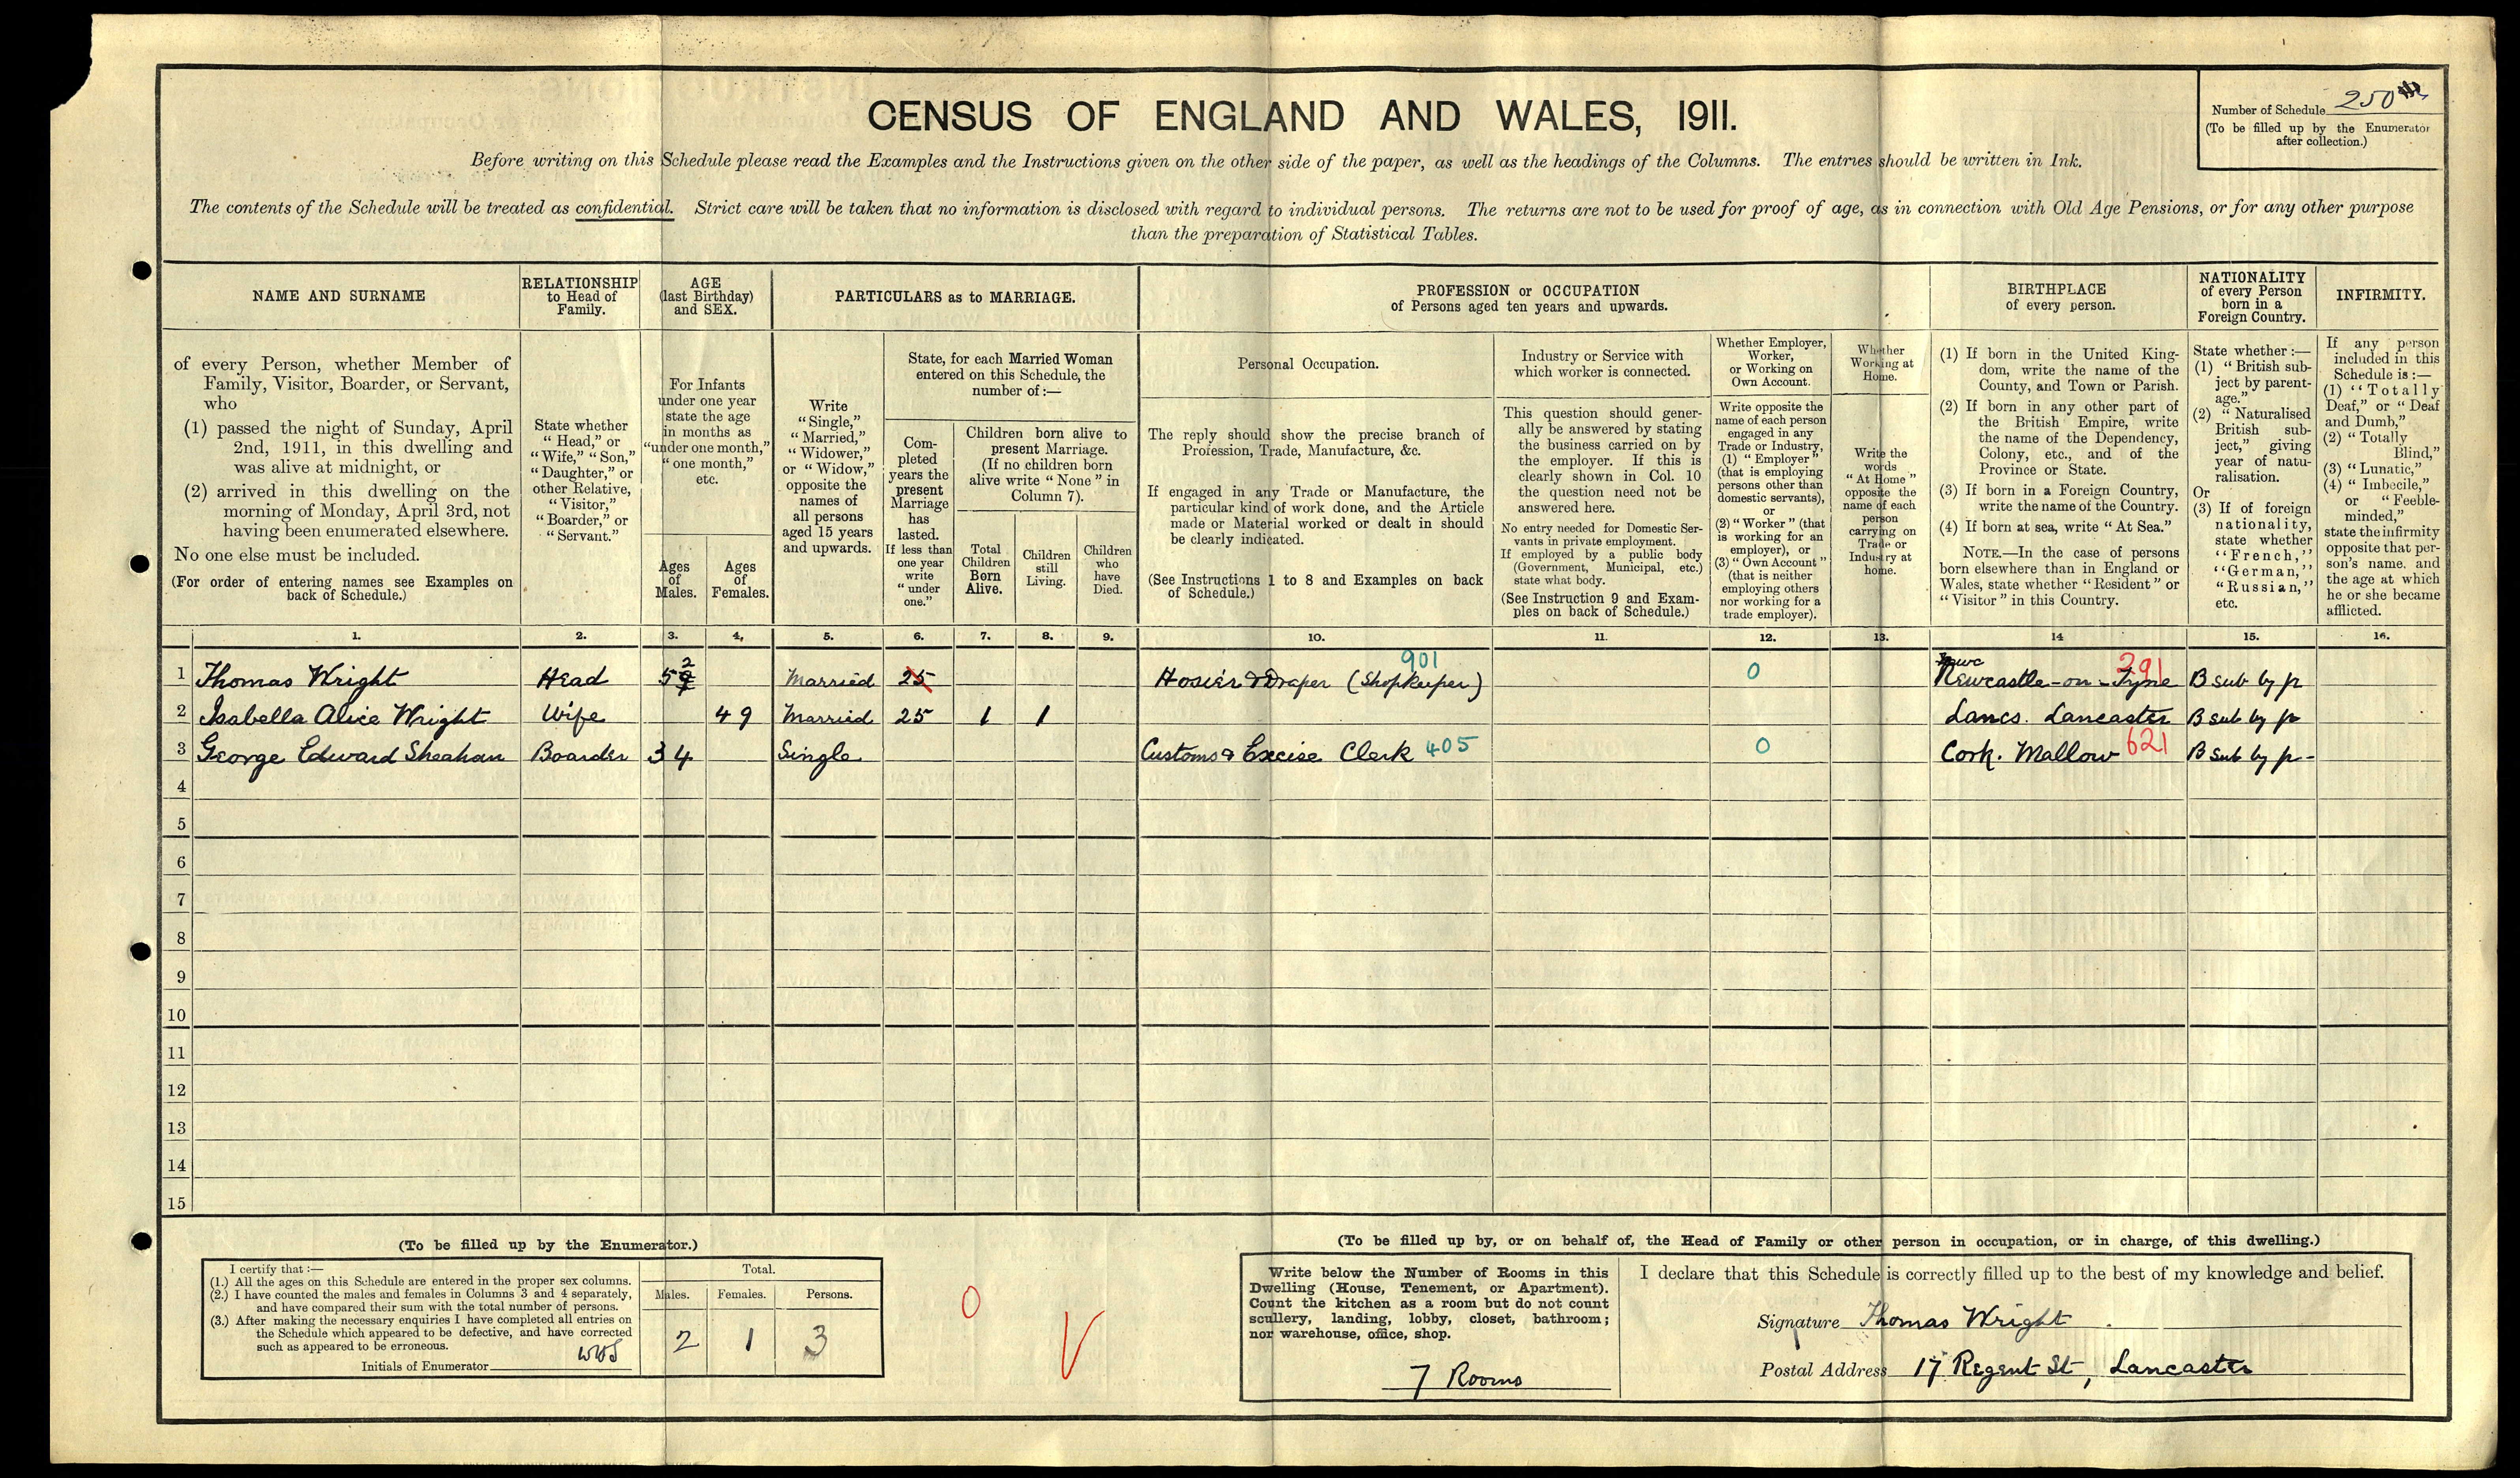 CENSUS OF ENGLAND AND WALES, 1911.
Number of Schedule 250
(To be filled up by the Enumerator
after collection.)
Before writing on this Schedule please read the Examples and the Instructions given on the other side of the paper, as well as the headings of the Columns. The entries should be written in Ink.
The contents of the Schedule will be treated as confidential. Strict care will be taken that no information is disclosed with regard to individual persons. The returns are not to be used for proof of age, as in connection with Old Age Pensions, or for any other purpose
than the preparation of Statistical Tables.
NAME AND SURNAME
of every Person, whether Member of
Family, Visitor, Boarder, or Servant,
who
(1) passed the night of Sunday, April
2nd, 1911, in this dwelling and
was alive at midnight, or
(2) arrived in this dwelling on the
morning of Monday, April 3rd, not
having been enumerated elsewhere.
No one else must be included.
(For order of entering names see Examples on
back of Schedule.)
RELATIONSHIP
to Head of
Family.
State whether
"Head," or
"Wife," "Son,"
"Daughter," or
other Relative,
"Visitor,"
"Boarder," or
"Servant."
AGE
(last Birthday)
and SEX.
For Infants
under one year
state the age
in months as
"under one month,"
"one month,"
etc.
Ages
of
Males.
Ages
of
Females.
PARTICULARS as to MARRIAGE.
Write
"Single,"
"Married,"
"Widower,"
or "Widow,"
opposite the
names of
all persons
aged 15 years
and upwards.
State, for each Married Woman
entered on this Schedule, the
number of:—
Com-
pleted
years the
present
Marriage
has
lasted.
If less than
one year
write
"under
one."
Children born alive to
present Marriage.
(If no children born
alive write "None" in
Column 7).
Total
Children
Born
Alive.
Children
still
Living.
Children
who
have
Died.
PROFESSION or OCCUPATION
of Persons aged ten years and upwards.
Personal Occupation.
The reply should show the precise branch of
Profession, Trade, Manufacture, &c.
If engaged in any Trade or Manufacture, the
particular kind of work done, and the Article
made or Material worked or dealt in should
be clearly indicated.
(See Instructions 1 to 8 and Examples on back
of Schedule.)
Industry or Service with
which worker is connected.
This question should gener-
ally be answered by stating
the business carried on by
the employer. If this is
clearly shown in Col. 10
the question need not be
answered here.
No entry needed for Domestic Ser-
vants in private employment.
If employed by a public body
(Government, Municipal, etc.)
state what body.
(See Instruction 9 and Exam-
ples on back of Schedule.)
Whether Employer,
Worker,
or Working on
Own Account.
Write opposite the
name of each person
engaged in any
Trade or Industry,
(1) "Employer"
(that is employing
persons other than
domestic servants),
or
(2) "Worker" (that
is working for an
employer), or
(3) "Own Account"
(that is neither
employing others
nor working for a
trade employer).
Whether
Working at
Home.
Write the
words
"At Home"
opposite the
name of each
person
carrying on
Trade or
Industry at
home.
BIRTHPLACE
of every person.
(1) If born in the United King-
dom, write the name of the
County, and Town or Parish.
(2) If born in any other part of
the British Empire, write
the name of the Dependency,
Colony, etc., and of the
Province or State.
(3) If born in a Foreign Country,
write the name of the Country.
(4) If born at sea, write "At Sea."
NOTE.—In the case of persons
born elsewhere than in England or
Wales, state whether "Resident" or
"Visitor" in this Country.
NATIONALITY
of every Person
born in a
Foreign Country.
State whether:—
(1) "British sub-
ject by parent-
age."
(2) "Naturalised
British sub-
ject," giving
year of natu-
ralisation.
Or
(3) If of foreign
nationality,
state whether
"French,"
"German,"
"Russian,"
etc.
INFIRMITY.
If any person
included in this
Schedule is:—
(1) "Totally
Deaf," or "Deaf
and Dumb,"
(2) "Totally
Blind,"
(3) "Lunatic,"
(4) "Imbecile,"
or "Feeble-
minded,"
state the infirmity
opposite that per-
son's name, and
the age at which
he or she became
afflicted.
1. 2. 3. 4. 5. 6. 7. 8. 9. 10. 11. 12. 13. 14 15. 16.
1 Thomas Wright Head 52 Married 25 Hosier & Draper (Shopkeeper) 901 0 Newcastle-on-Tyne 291 B sub by p
2 Isabella Alice Wright Wife 49 Married 25 1 1 Lancs. Lancaster B sub by p
3 George Edward Sheahan Boarder 34 Single Customs & Excise Clerk 405 0 Cork. Mallow 621 B sub by p-
4
5
6
7
8
9
10
11
12
13
14
15
(To be filled up by the Enumerator.)
I certify that:—
(1.) All the ages on this Schedule are entered in the proper sex columns.
(2.) I have counted the males and females in Columns 3 and 4 separately,
and have compared their sum with the total number of persons.
(3.) After making the necessary enquiries I have completed all entries on
the Schedule which appeared to be defective, and have corrected
such as appeared to be erroneous.
Initials of Enumerator
Total.
Males. Females. Persons.
2 1 3
0
(To be filled up by, or on behalf of, the Head of Family or other person in occupation, or in charge, of this dwelling.)
Write below the Number of Rooms in this
Dwelling (House, Tenement, or Apartment).
Count the kitchen as a room but do not count
scullery, landing, lobby, closet, bathroom;
nor warehouse, office, shop.
7 Rooms
I declare that this Schedule is correctly filled up to the best of my knowledge and belief.
Signature Thomas Wright
Postal Address 17 Regent St, Lancaster